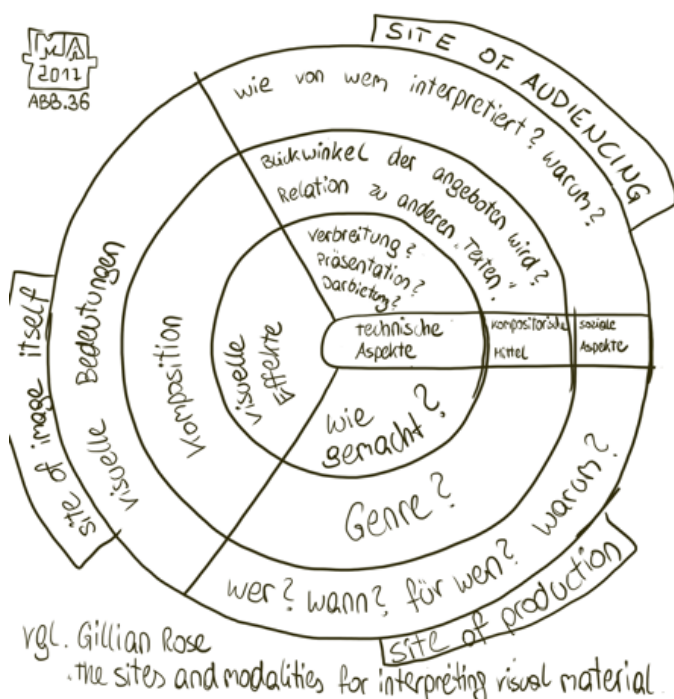 MA
2017
ABB.36
SITE OF AUDIENCING
wie von wem interpretiert? warum?
Blickwinkel der angeboten wird?
Relation zu anderen "Texten"?
Verbreitung?
Präsentation?
Darbietung?
technische
Aspekte
kompositorische
Mittel
soziale
Aspekte
site of image itself
visuelle Bedeutungen
Komposition
Visuelle
Effekte
wie
gemacht?
Genre?
wer? wann? für wen? warum?
site of production
vgl. Gillian Rose
the sites and modalities for interpreting visual material